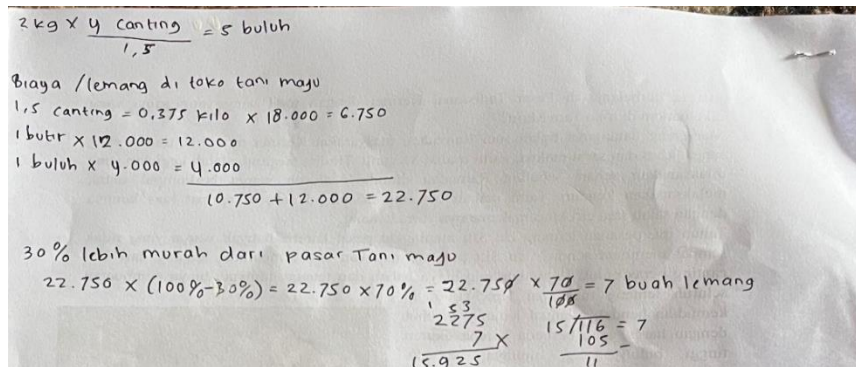 2 kg x 4 canting = 5 buluh
1,5
Biaya / lemang di toko tani maju
1,5 canting = 0,375 kilo x 18.000 = 6.750
1 butir x 12.000 = 12.000
1 buluh x 4.000 = 4.000
10.750 + 12.000 = 22.750
30% lebih murah dari pasar Tani maju
22.750 x (100%-30%) = 22.750 x 70% = 22.750 x 70 = 7 buah lemang
100
1 53
2275
7 x
15.925
15/116 = 7
105 -
11